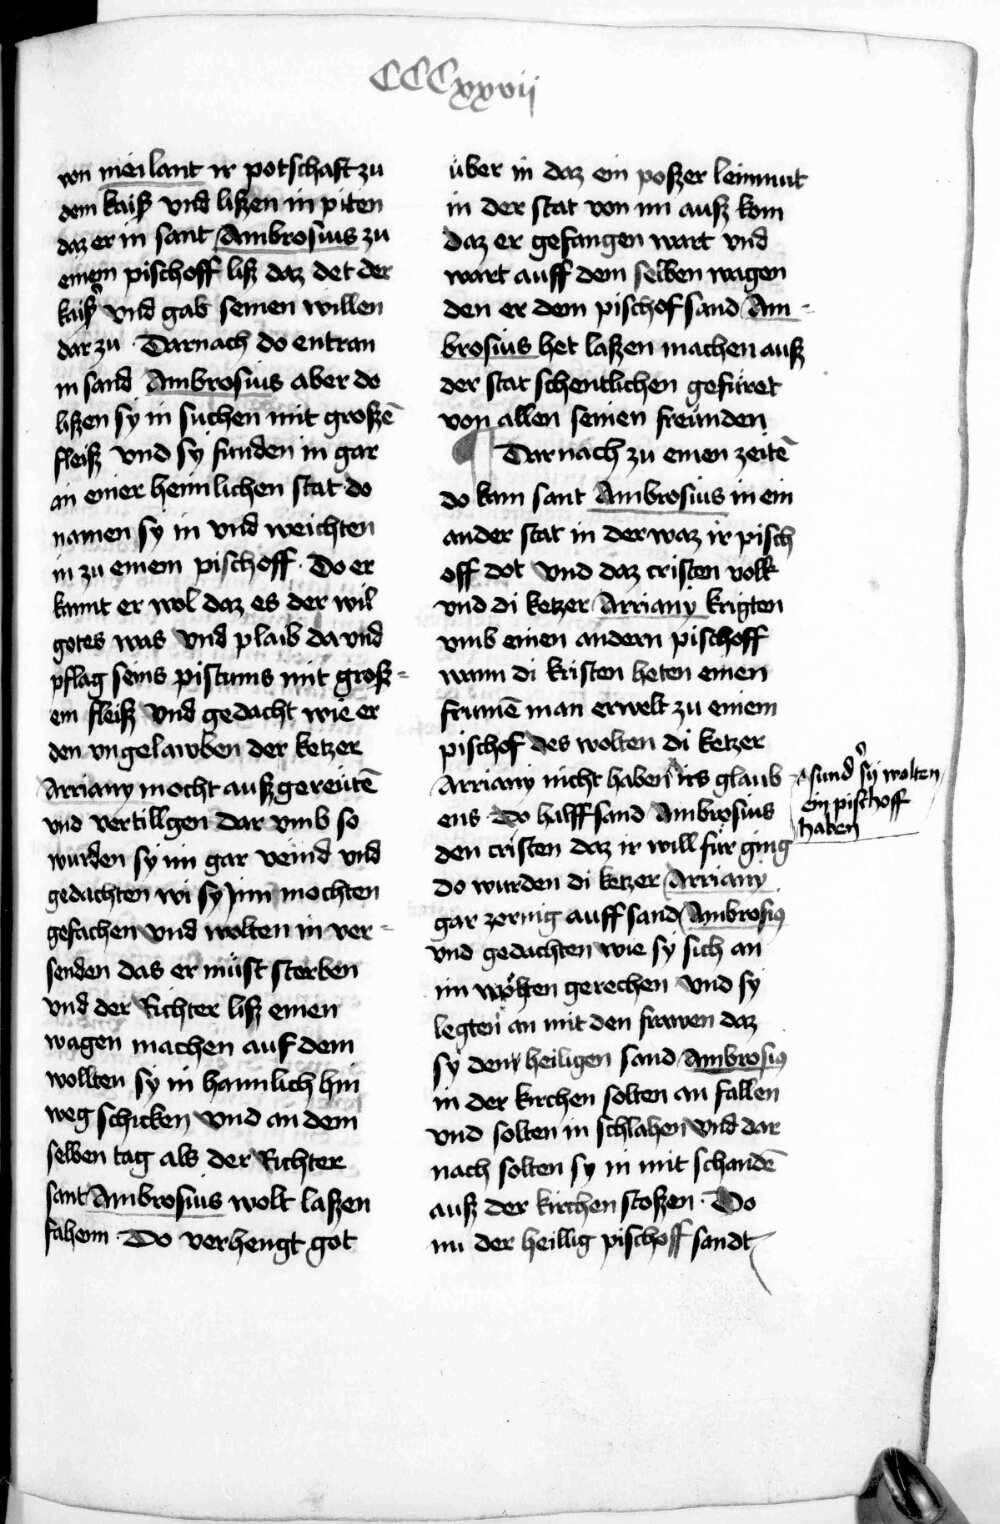 CCCxxvij
von meilant ir potschaft zu
dem kaiſs vnd liſzen in piten
daz er in sant Ambrosius zu
einem pischoff liſz daz det der
kaiſs vnd gab seinen willen
dar zu · Darnach do entran
in sand Ambrosius aber do
liſzen sy in suchen mit groſzē
fleiſz vnd sy funden in gar
an einer heimlichen stat do
namen sy in vnd weichten
in zu einem pischoff · Do er
kannt er wol daz es der wil
gotes was vnd plaib da vnd
pflag seins pistums mit groſz=
em fleiſz vnd gedacht wie er
den vngelawben der ketzer
Arriany mocht auſzgereütē
vnd vertillgen dar vmb so
wurden sy im gar veind vnd
gedachten wi sy jnn mochten
gefachen vnd wolten in ver=
senden das er müst sterben
vnd der Richter liſz einen
wagen machen auf dem
wollten sy in haimlich hin
weg schicken vnd an dem
selben tag als der Richter
sant Ambrosius wolt laſzen
fahenn · Do verhengt got
über in daz ein poſzer leinmut
in der stat von im auſz kom
daz er gefangen wart vnd
wart auff dem selben wagen
den er dem pischof sand Am=
brosius het laſzen machen auſz
der stat schentlichen gefüret
von allen seinen freunden
¶ Darnach zu einen zeitē
do kam sant Ambrosius in ein
ander stat in der waz ir pisch
off dot vnd daz cristen volk
vnd di ketzer Arriany krigten
vmb einen andern pischoff
wann di kristen heten einen
frumē man erwelt zu einem
pischof des wolten di ketzer
Arriany nicht haben irs glaub
ens · Do halff sand Ambrosius
den cristen daz ir will für ging
do wurden di ketzer Arriany
gar zornig auff sand Ambrosiꝰ
vnd gedachten wie sy sich an
im wolten gerechen vnd sy
legten an mit den frawen daz
sy dem heiligen sand Ambrosiꝰ
in der kirchen solten an fallen
vnd solten in schlahen vnd dar
nach solten sy in mit schandē
auſz der kirchen stoſzen · Do
nu der heillig pischoff sandt
sund sy wolten
ein pischoff
haben